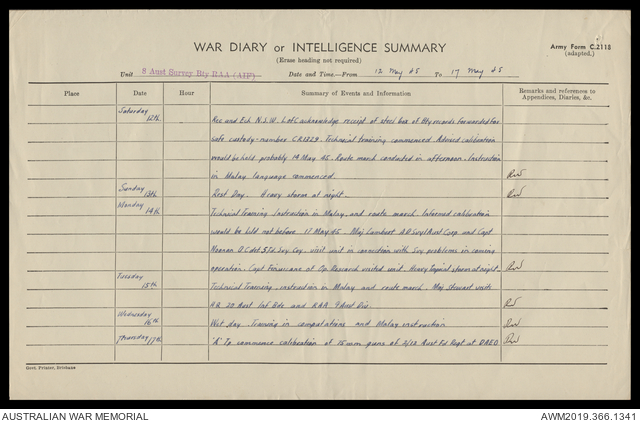 WAR DIARY or INTELLIGENCE SUMMARY
(Erase heading not required)
Army Form C.2118
(adapted.)
Unit 8 Aust Survey Bty RAA (AIF) Date and Time—From 12 May 45 To 17 May 45
Place Date Hour Summary of Events and Information Remarks and references to Appendices, Diaries, &c.
Saturday
12th Rec and Ech N.S.W. L of C acknowledge receipt of steel box of Bty records forwarded for
safe custody - number CR1329. Technical training commenced. Advised calibration
would be held probably 14 May 45. Route march conducted in afternoon. Instruction
in Malay language commenced.
Sunday
13th Rest Day. Heavy storm at night.
Monday
14th Technical Training Instruction in Malay, and route march. Informed calibration
would be held not before 17 May 45. Maj Lambert AD Svy 1 Aust Corp and Capt
Noonan OC det 3 Fd Svy Coy. visit unit in connection with Svy problems in coming
operation. Capt of Op Research visited unit. Heavy tropical storm at night.
Tuesday
15th Technical Training, instruction in Malay and route march. Maj Stewart visits
HQ 20 Aust Inf Bde and RAA 9 Aust Div.
Wednesday
16th Wet day. Training in computations and Malay instruction
Thursday 17th 'A' Tp commence calibration of 75mm guns of 2/12 Aust Fd Regt at
Govt. Printer, Brisbane
AUSTRALIAN WAR MEMORIAL
AWM2019.366.1341